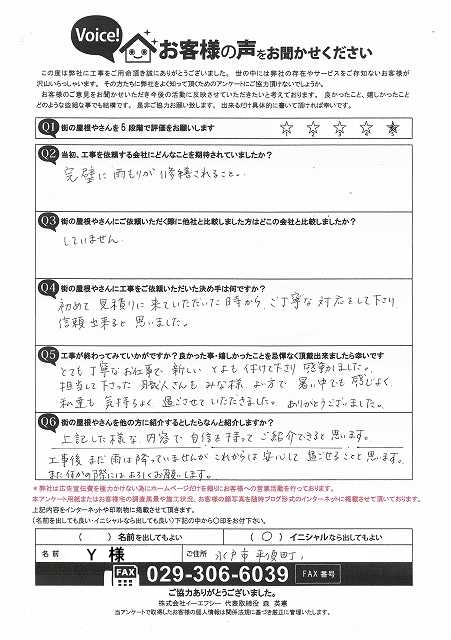 Voice!
お客様の声をお聞かせください
この度は弊社に工事をご用命頂き誠にありがとうございました。世の中には弊社の存在やサービスをご存知ないお客様が
沢山いらっしゃいます。その方たちに弊社をよく知って頂くためのアンケートにご協力頂けないでしょうか。
お客様のご意見をお聞かせいただき今後の活動に反映させていただきたいと考えております。良かったこと、嬉しかったこと
どのような些細な事でも結構です。是非ご協力お願い致します。出来るだけ具体的に書いて頂ければ幸いです。
Q1 街の屋根やさんを5段階で評価をお願いします ☆ ☆ ☆ ☆ ★
Q2 当初、工事を依頼する会社にどんなことを期待されていましたか?
完璧に雨もりが修繕されること。
Q3 街の屋根やさんにご依頼いただく際に他社と比較しました方はどこの会社と比較しましたか?
していません
Q4 街の屋根やさんに工事をご依頼いただいた決め手は何ですか?
初めて見積りに来ていただいた時から、ご丁寧な対応をして下さり
信頼出来ると思いました。
Q5 工事が終わってみていかがですか?良かった事・嬉しかったことを忌憚なく頂戴出来ましたら幸いです
とても丁寧なお仕事で、新しいとよも付け下さり感動しました。
担当して下さった職人さんもみな様、よい方で暑い中でも感じよく
私達も気持ちよく過ごさせていただきました。ありがとうございました。
Q6 街の屋根やさんを他の方に紹介するとしたらなんと紹介しますか?
上記した様な内容で自信を持ってご紹介できると思います。
工事後まだ雨は降っていませんがこれからは安心して過ごせることと思います。
また何かの際にはよろしくお願いします。
*弊社は広告宣伝費を極力かけない為にホームページだけを頼りにお客様への営業活動を行っております。
本アンケート用紙またはお客様宅の調査風景や施工状況、お客様の顔写真を随時ブログ形式のインターネットに掲載させて頂いております。
上記内容をインターネットや印刷物に掲載させて頂きます。
(名前を出しても良い・イニシャルなら出しても良い)下記の中から〇印をお付下さい。
( )名前を出してもよい ( 〇 )イニシャルなら出してもよい
名前 Y 様 ご住所 水戸市平須町
FAX 029-306-6039 FAX番号
ご協力ありがとうございました。
株式会社イーエフシー 代表取締役 森 英憲
当アンケートで取得したお客様の個人情報は関係法規に基づき厳正に管理いたします。